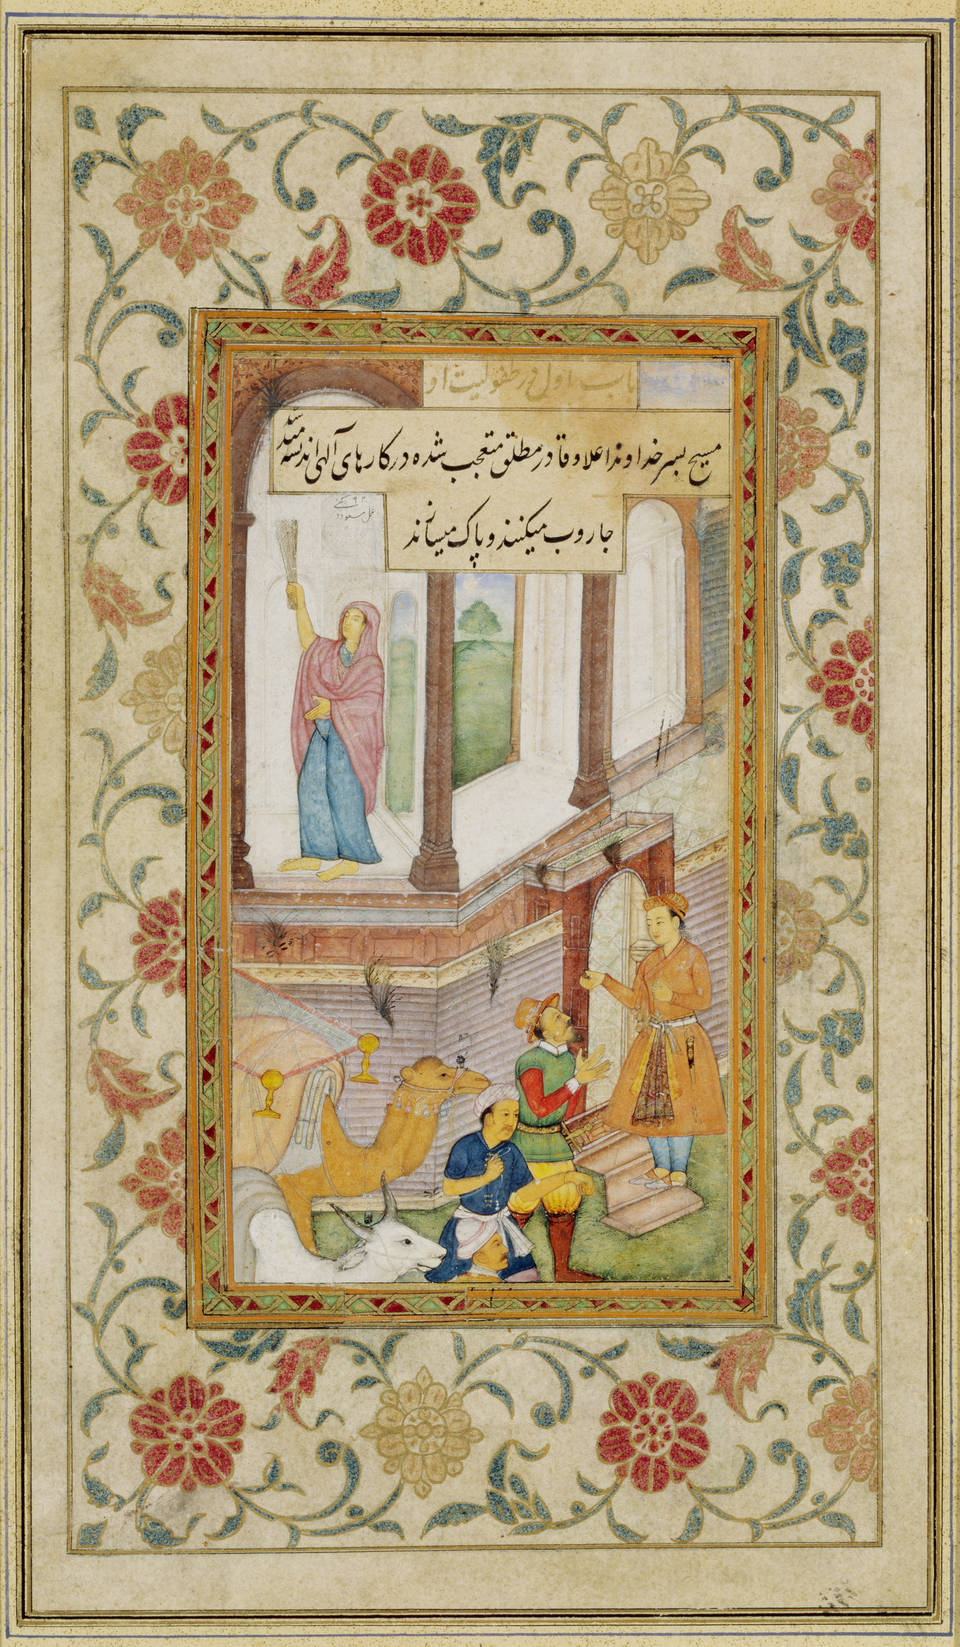 باب اول در طفولیت او
مسیح پسر خداوند اعلا و قادر مطلق متعجب شده در کارهای آلهی اندیشه مند شد
جاروب میکنند و پاک میسازند
عمل مسعود